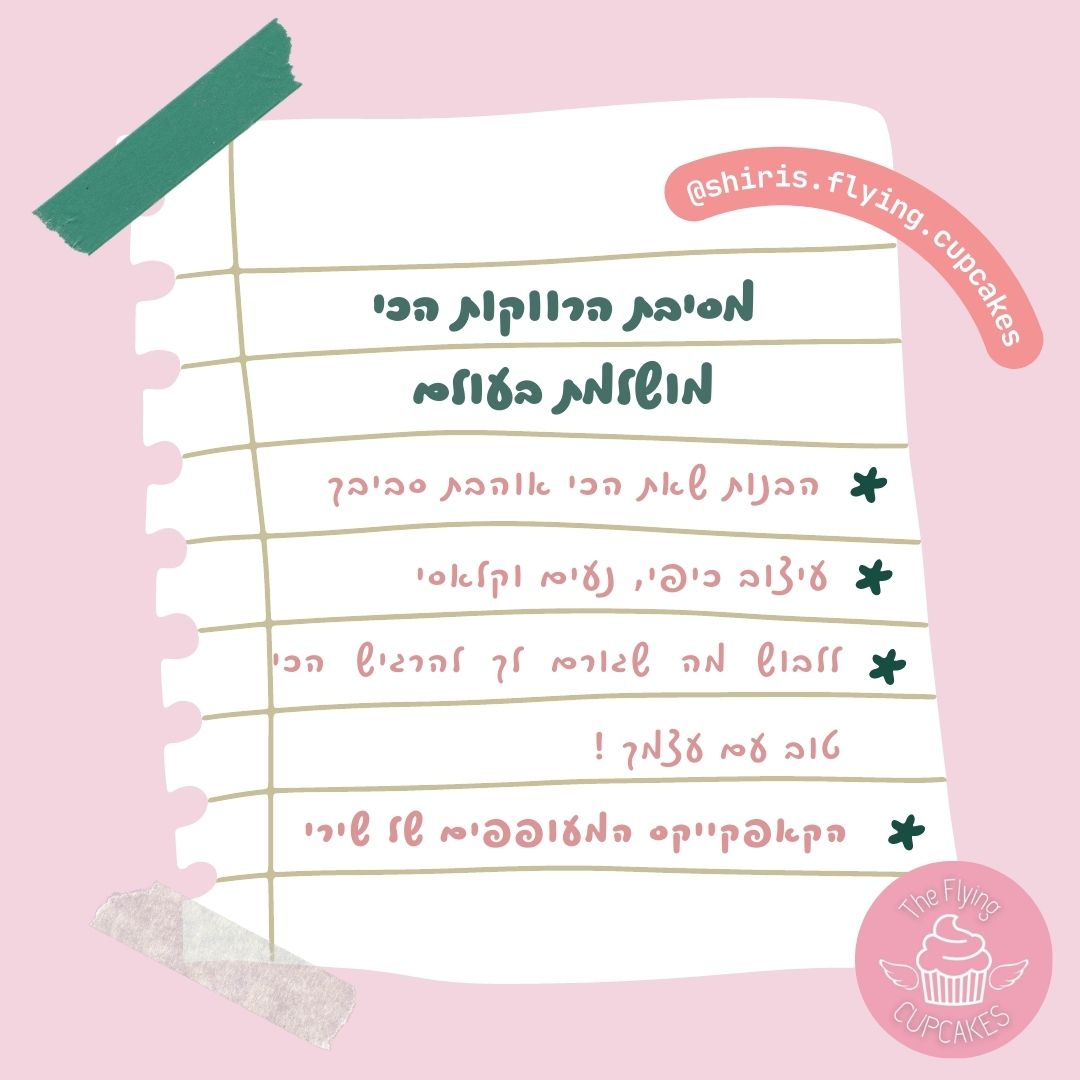 @shiris.flying.cupcakes
מסיבת הרווקות הכי
מושלמת בעולם
הבנות שאת הכי אוהבת סביבך
עיצוב כיפי, נעים וקלאסי
ללבוש מה שגורם לך להרגיש הכי
טוב עם עצמך !
הקאפקייקס המעופפים של שירי
The Flying
CUPCAKES